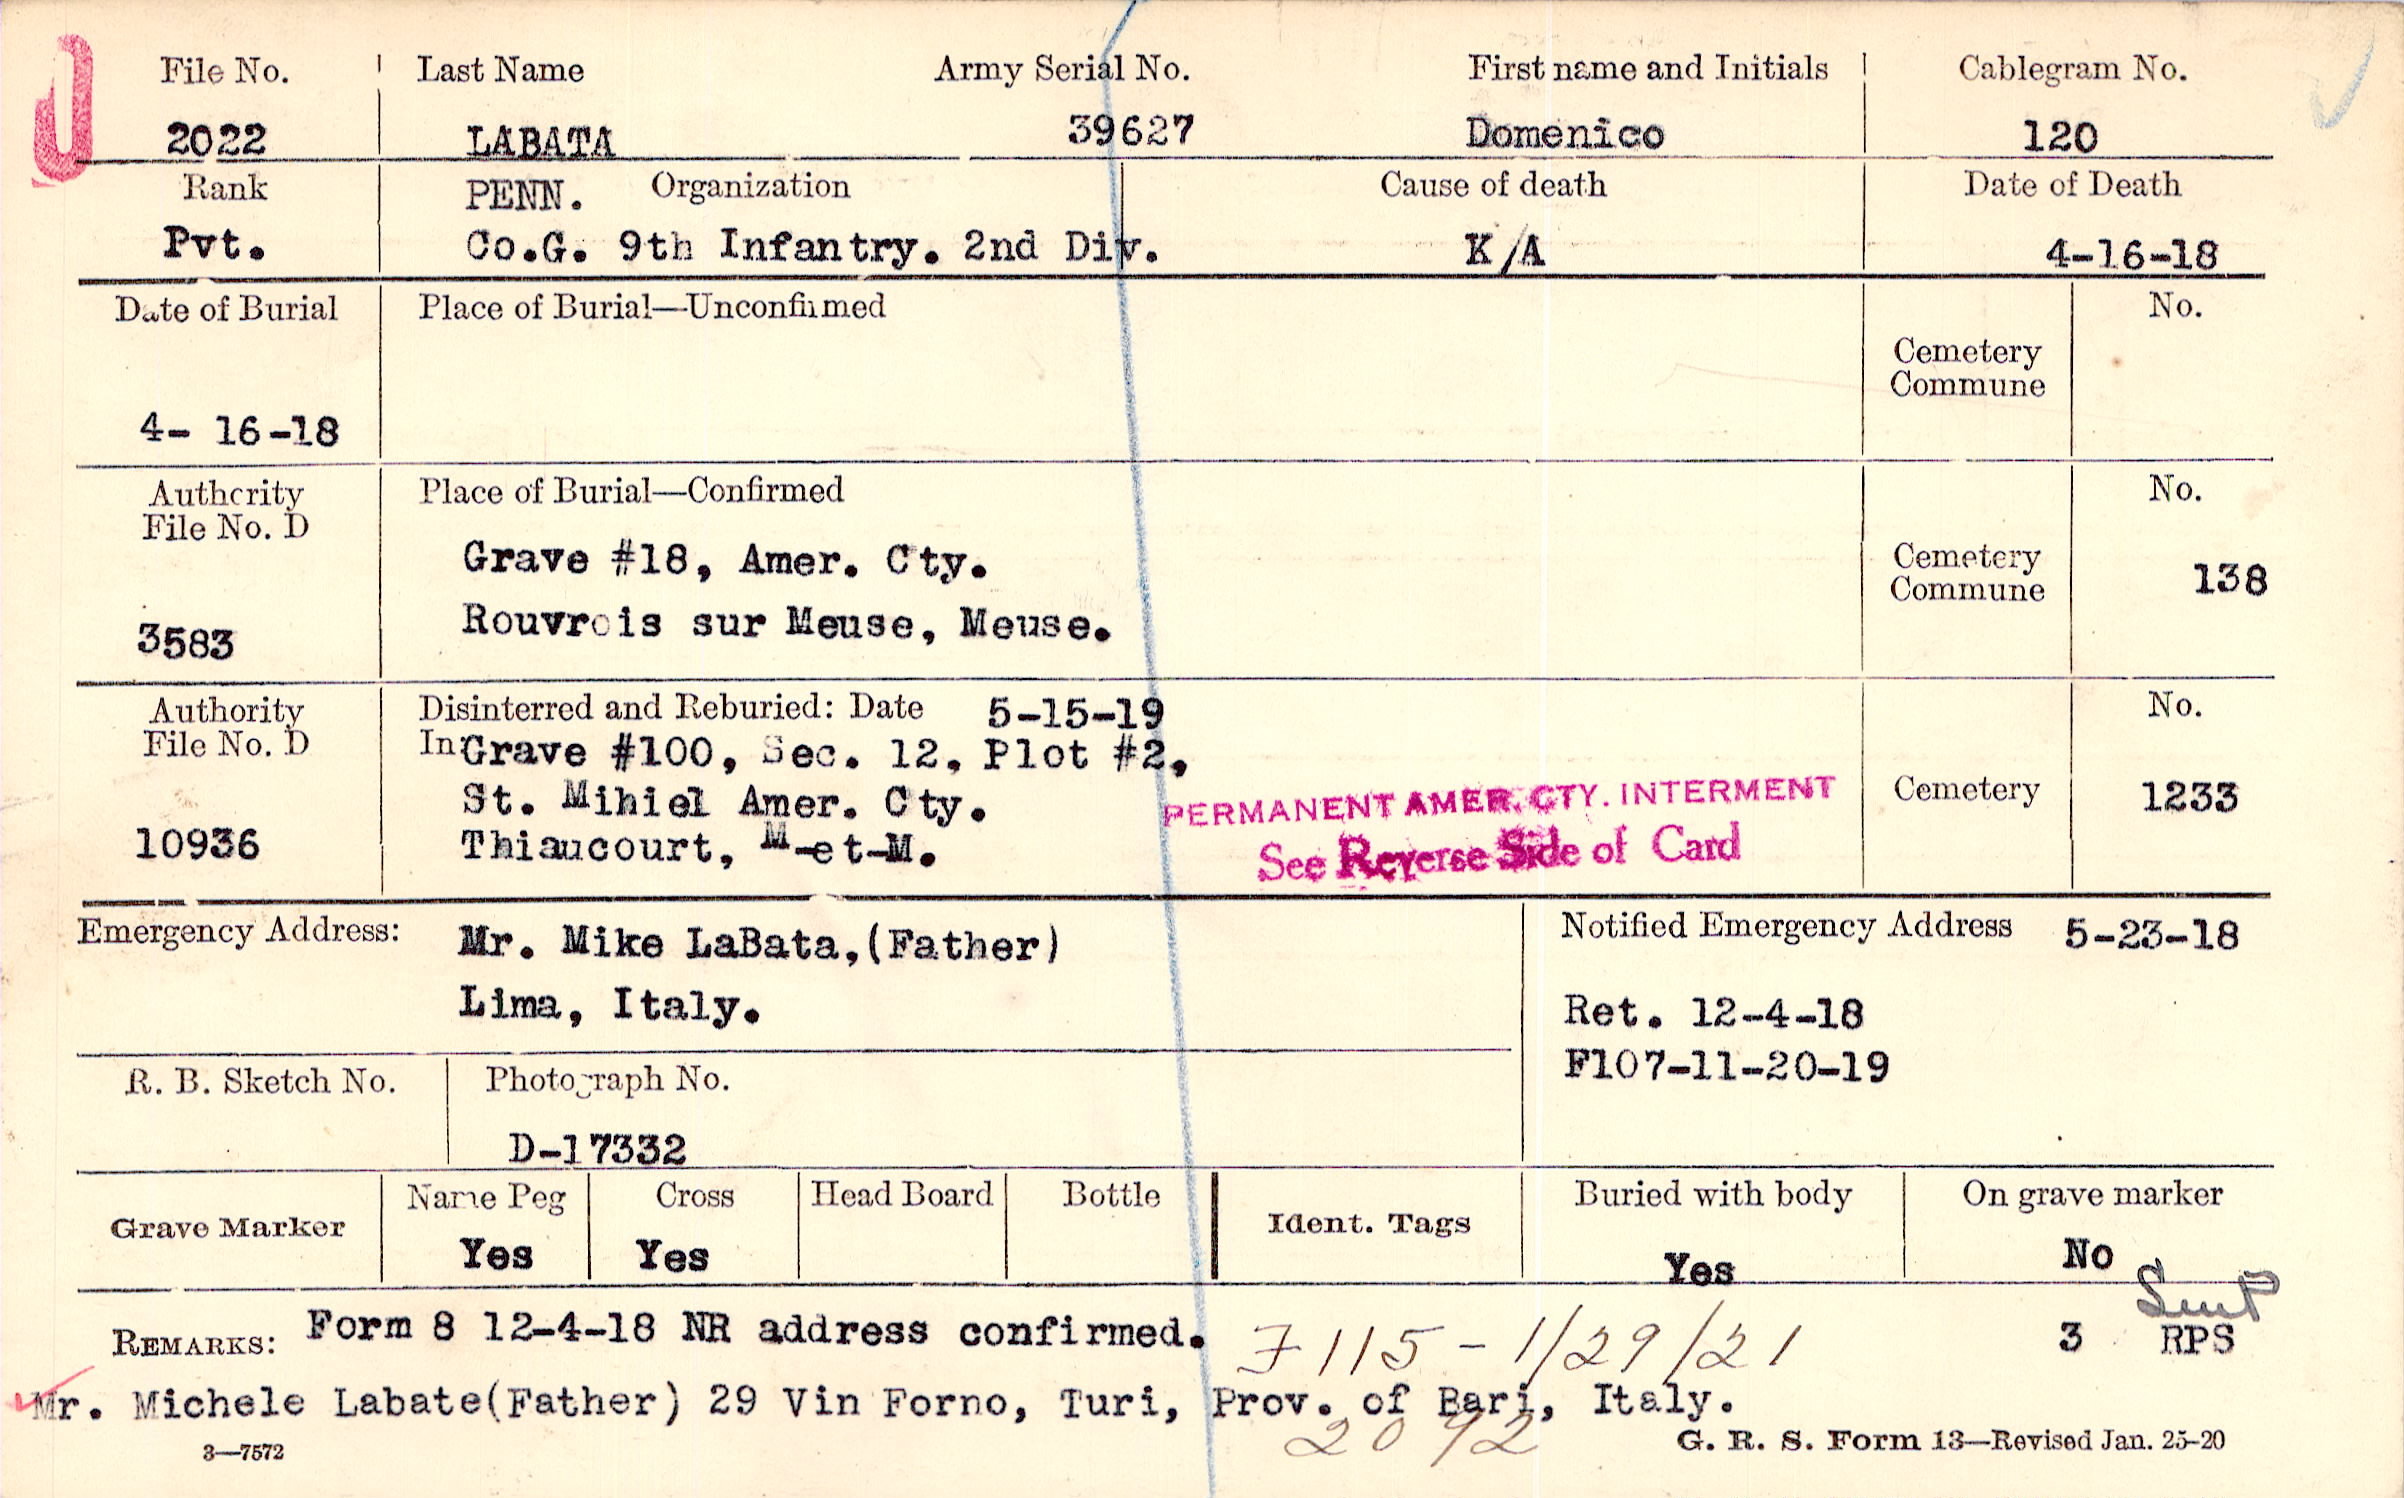 File No. Last Name Army Serial No. First name and Initials Cablegram No.
2022 LABATA 39627 Domenico 120
Rank PENN. Organization Cause of death Date of Death
Pvt. Co.G. 9th Infantry. 2nd Div. K/A 4-16-18
Date of Burial Place of Burial—Unconfirmed No.
Cemetery
Commune
4- 16-18
Authority Place of Burial—Confirmed No.
File No. D
Grave #18, Amer. Cty. Cemetery
Commune 138
3583 Rouvrois sur Meuse, Meuse.
Authority Disinterred and Reburied: Date 5-15-19 No.
File No. D In Grave #100, Sec. 12, Plot #2,
St. Mihiel Amer. Cty. PERMANENT AMER. CTY. INTERMENT Cemetery 1233
10936 Thiaucourt, M-et-M. See Reverse Side of Card
Emergency Address: Mr. Mike LaBata,(Father) Notified Emergency Address 5-23-18
Lima, Italy. Ret. 12-4-18
F107-11-20-19
R. B. Sketch No. Photograph No.
D-17332
Grave Marker Name Peg Cross Head Board Bottle Ident. Tags Buried with body On grave marker
Yes Yes Yes No
REMARKS: Form 8 12-4-18 NR address confirmed. F115-1/29/21 3 RPS
Mr. Michele Labate(Father) 29 Vin Forno, Turi, Prov. of Bari, Italy.
2092
3—7572 G. R. S. Form 13—Revised Jan. 25-20